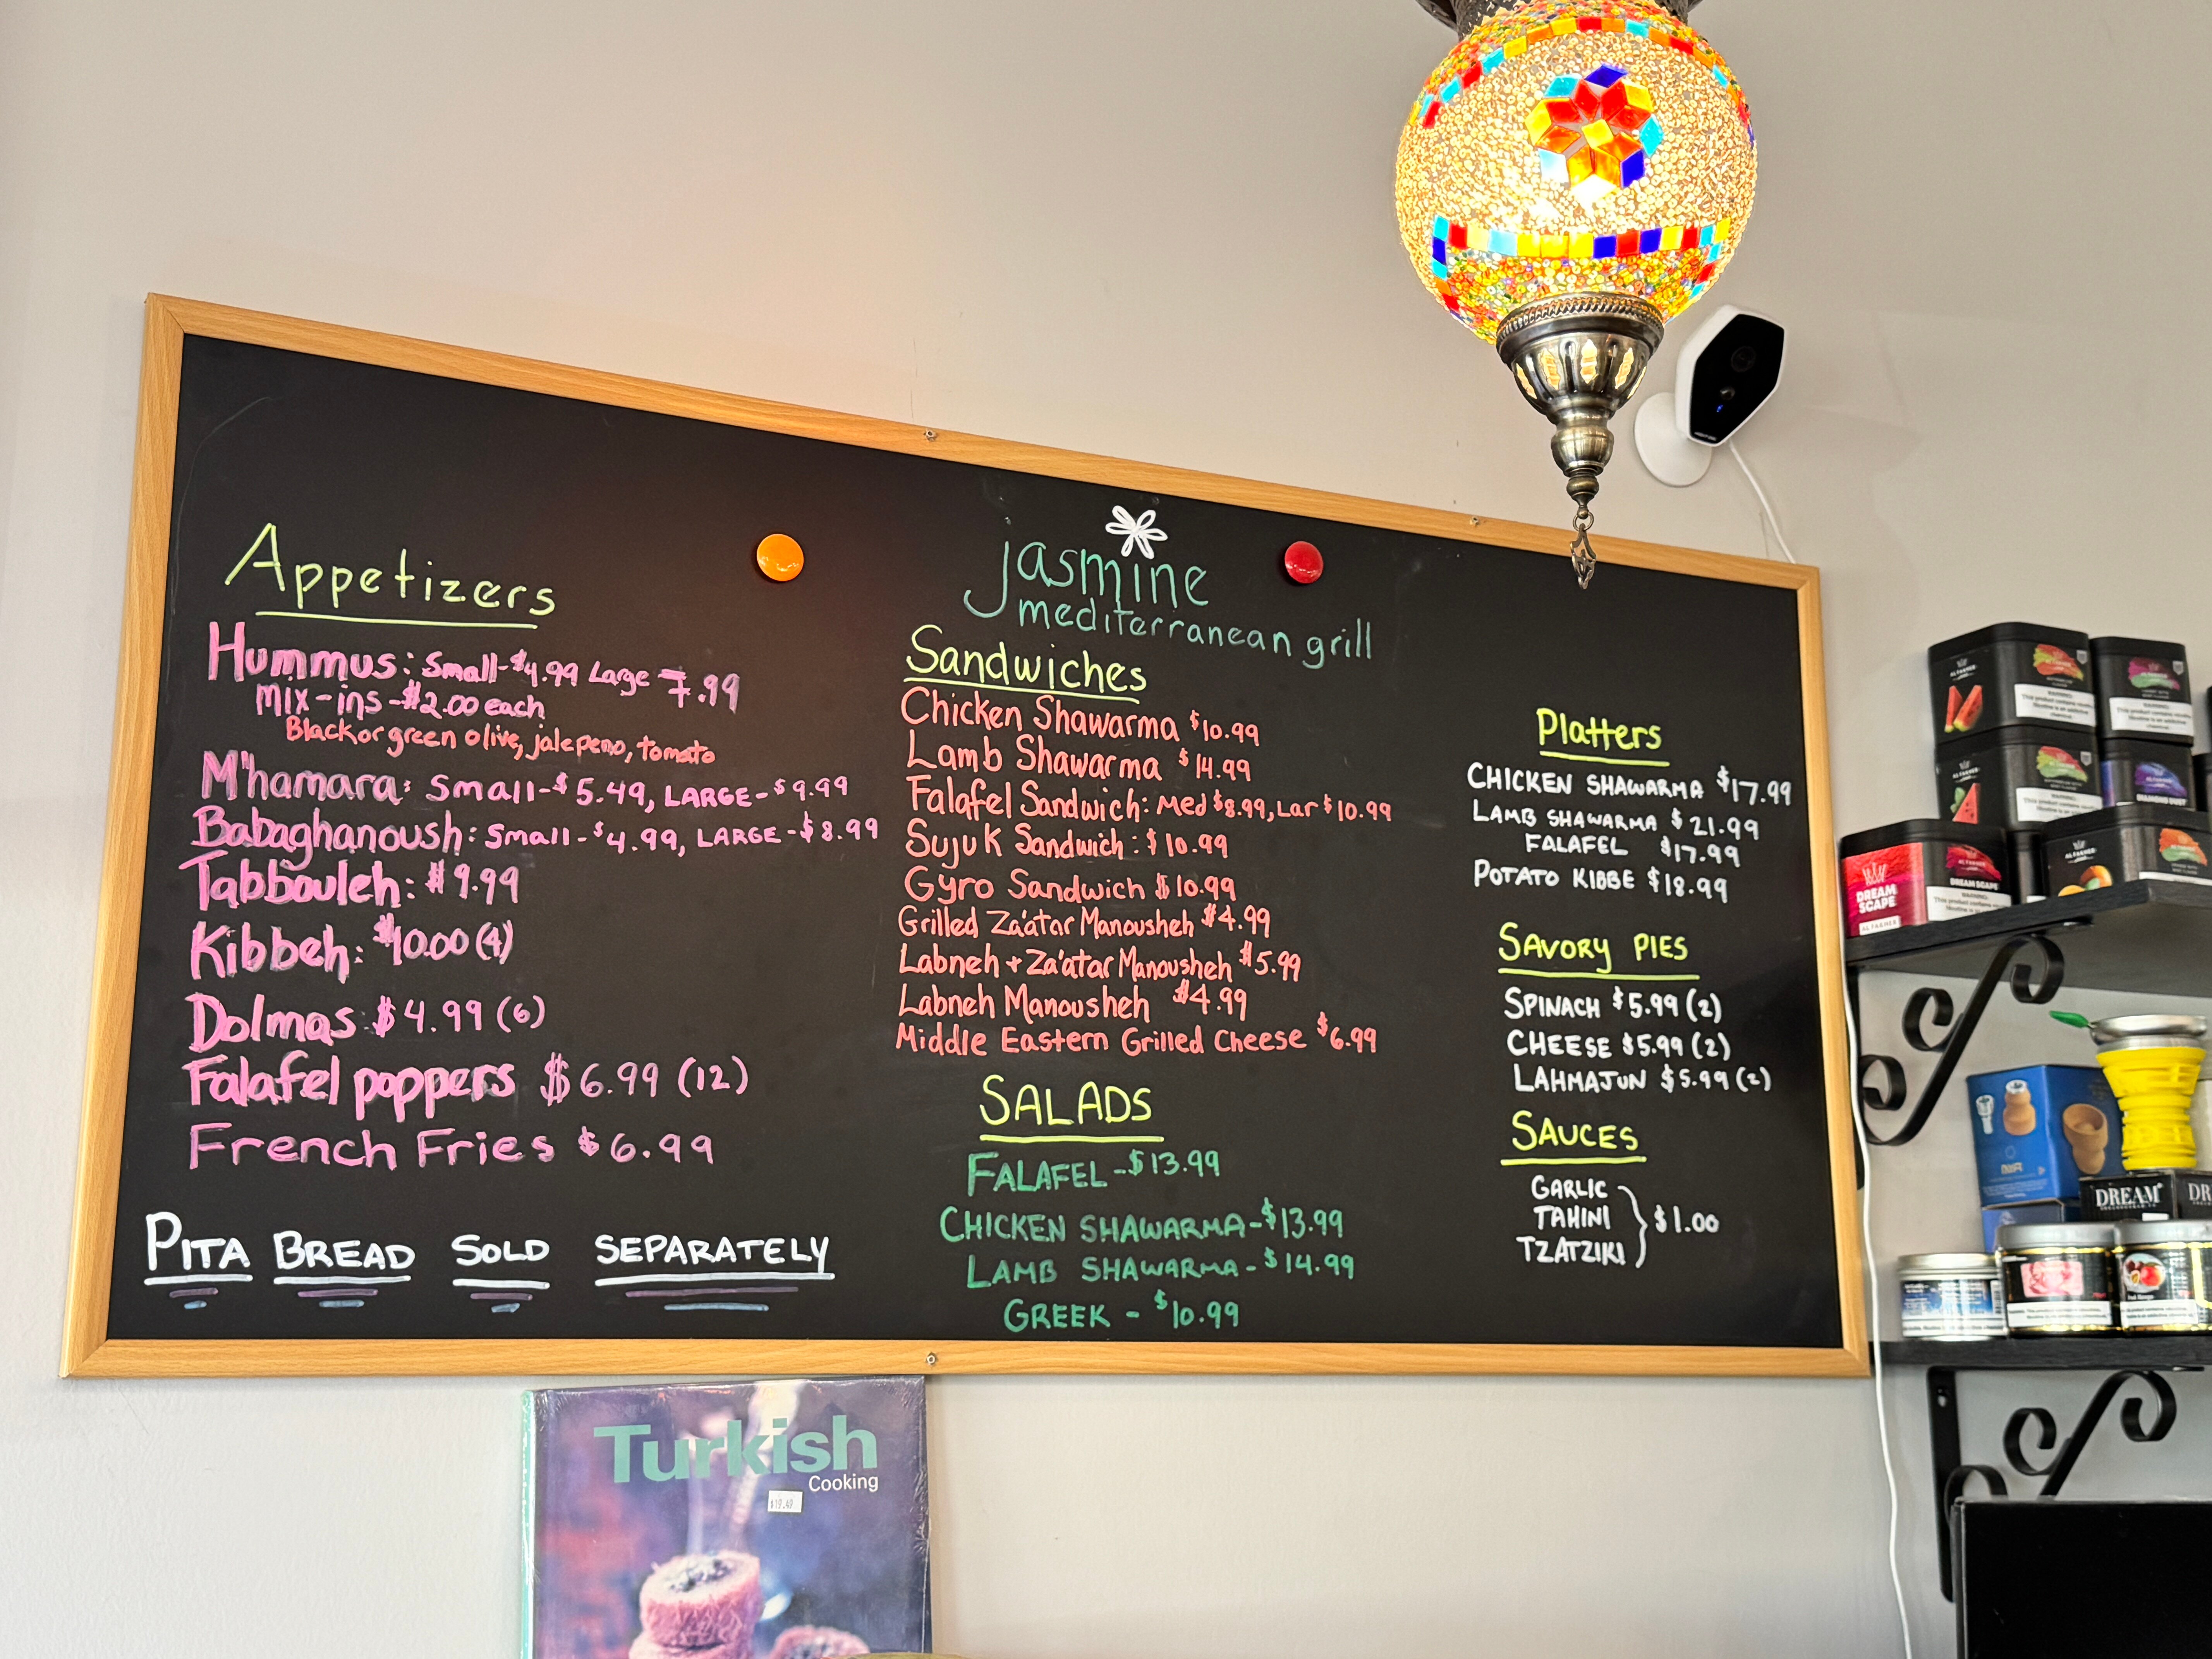 Appetizers
Hummus: Small-$4.99 Large 7.99
Mix-ins-$2.00 each
Black or green olive, jalepeno, tomato
M'hamara: Small-$5.49, LARGE-$9.99
Babaghanoush: Small-$4.99, LARGE-$8.99
Tabbouleh: $9.99
Kibbeh: $10.00 (4)
Dolmas $4.99 (6)
Falafel poppers $6.99 (12)
French Fries $6.99
PITA BREAD SOLD SEPARATELY
jasmine
mediterranean grill
Sandwiches
Chicken Shawarma $10.99
Lamb Shawarma $14.99
Falafel Sandwich: Med $8.99, Lar $10.99
Sujuk Sandwich: $10.99
Gyro Sandwich $10.99
Grilled Za'atar Manousheh $4.99
Labneh + Za'atar Manousheh $5.99
Labneh Manousheh $4.99
Middle Eastern Grilled Cheese $6.99
SALADS
FALAFEL-$13.99
CHICKEN SHAWARMA-$13.99
LAMB SHAWARMA-$14.99
GREEK - $10.99
Platters
CHICKEN SHAWARMA $17.99
LAMB SHAWARMA $21.99
FALAFEL $17.99
POTATO KIBBE $18.99
SAVORY PIES
SPINACH $5.99 (2)
CHEESE $5.99 (2)
LAHMAJUN $5.99 (2)
SAUCES
GARLIC
TAHINI
TZATZIKI
$1.00
Turkish
Cooking
$19.49
AL FAKHER
WARNING:
This product contains
Nicotine is an addictive
DREAM
SCAPE
AL FAKHER
DREAM SCAPE
DREAM